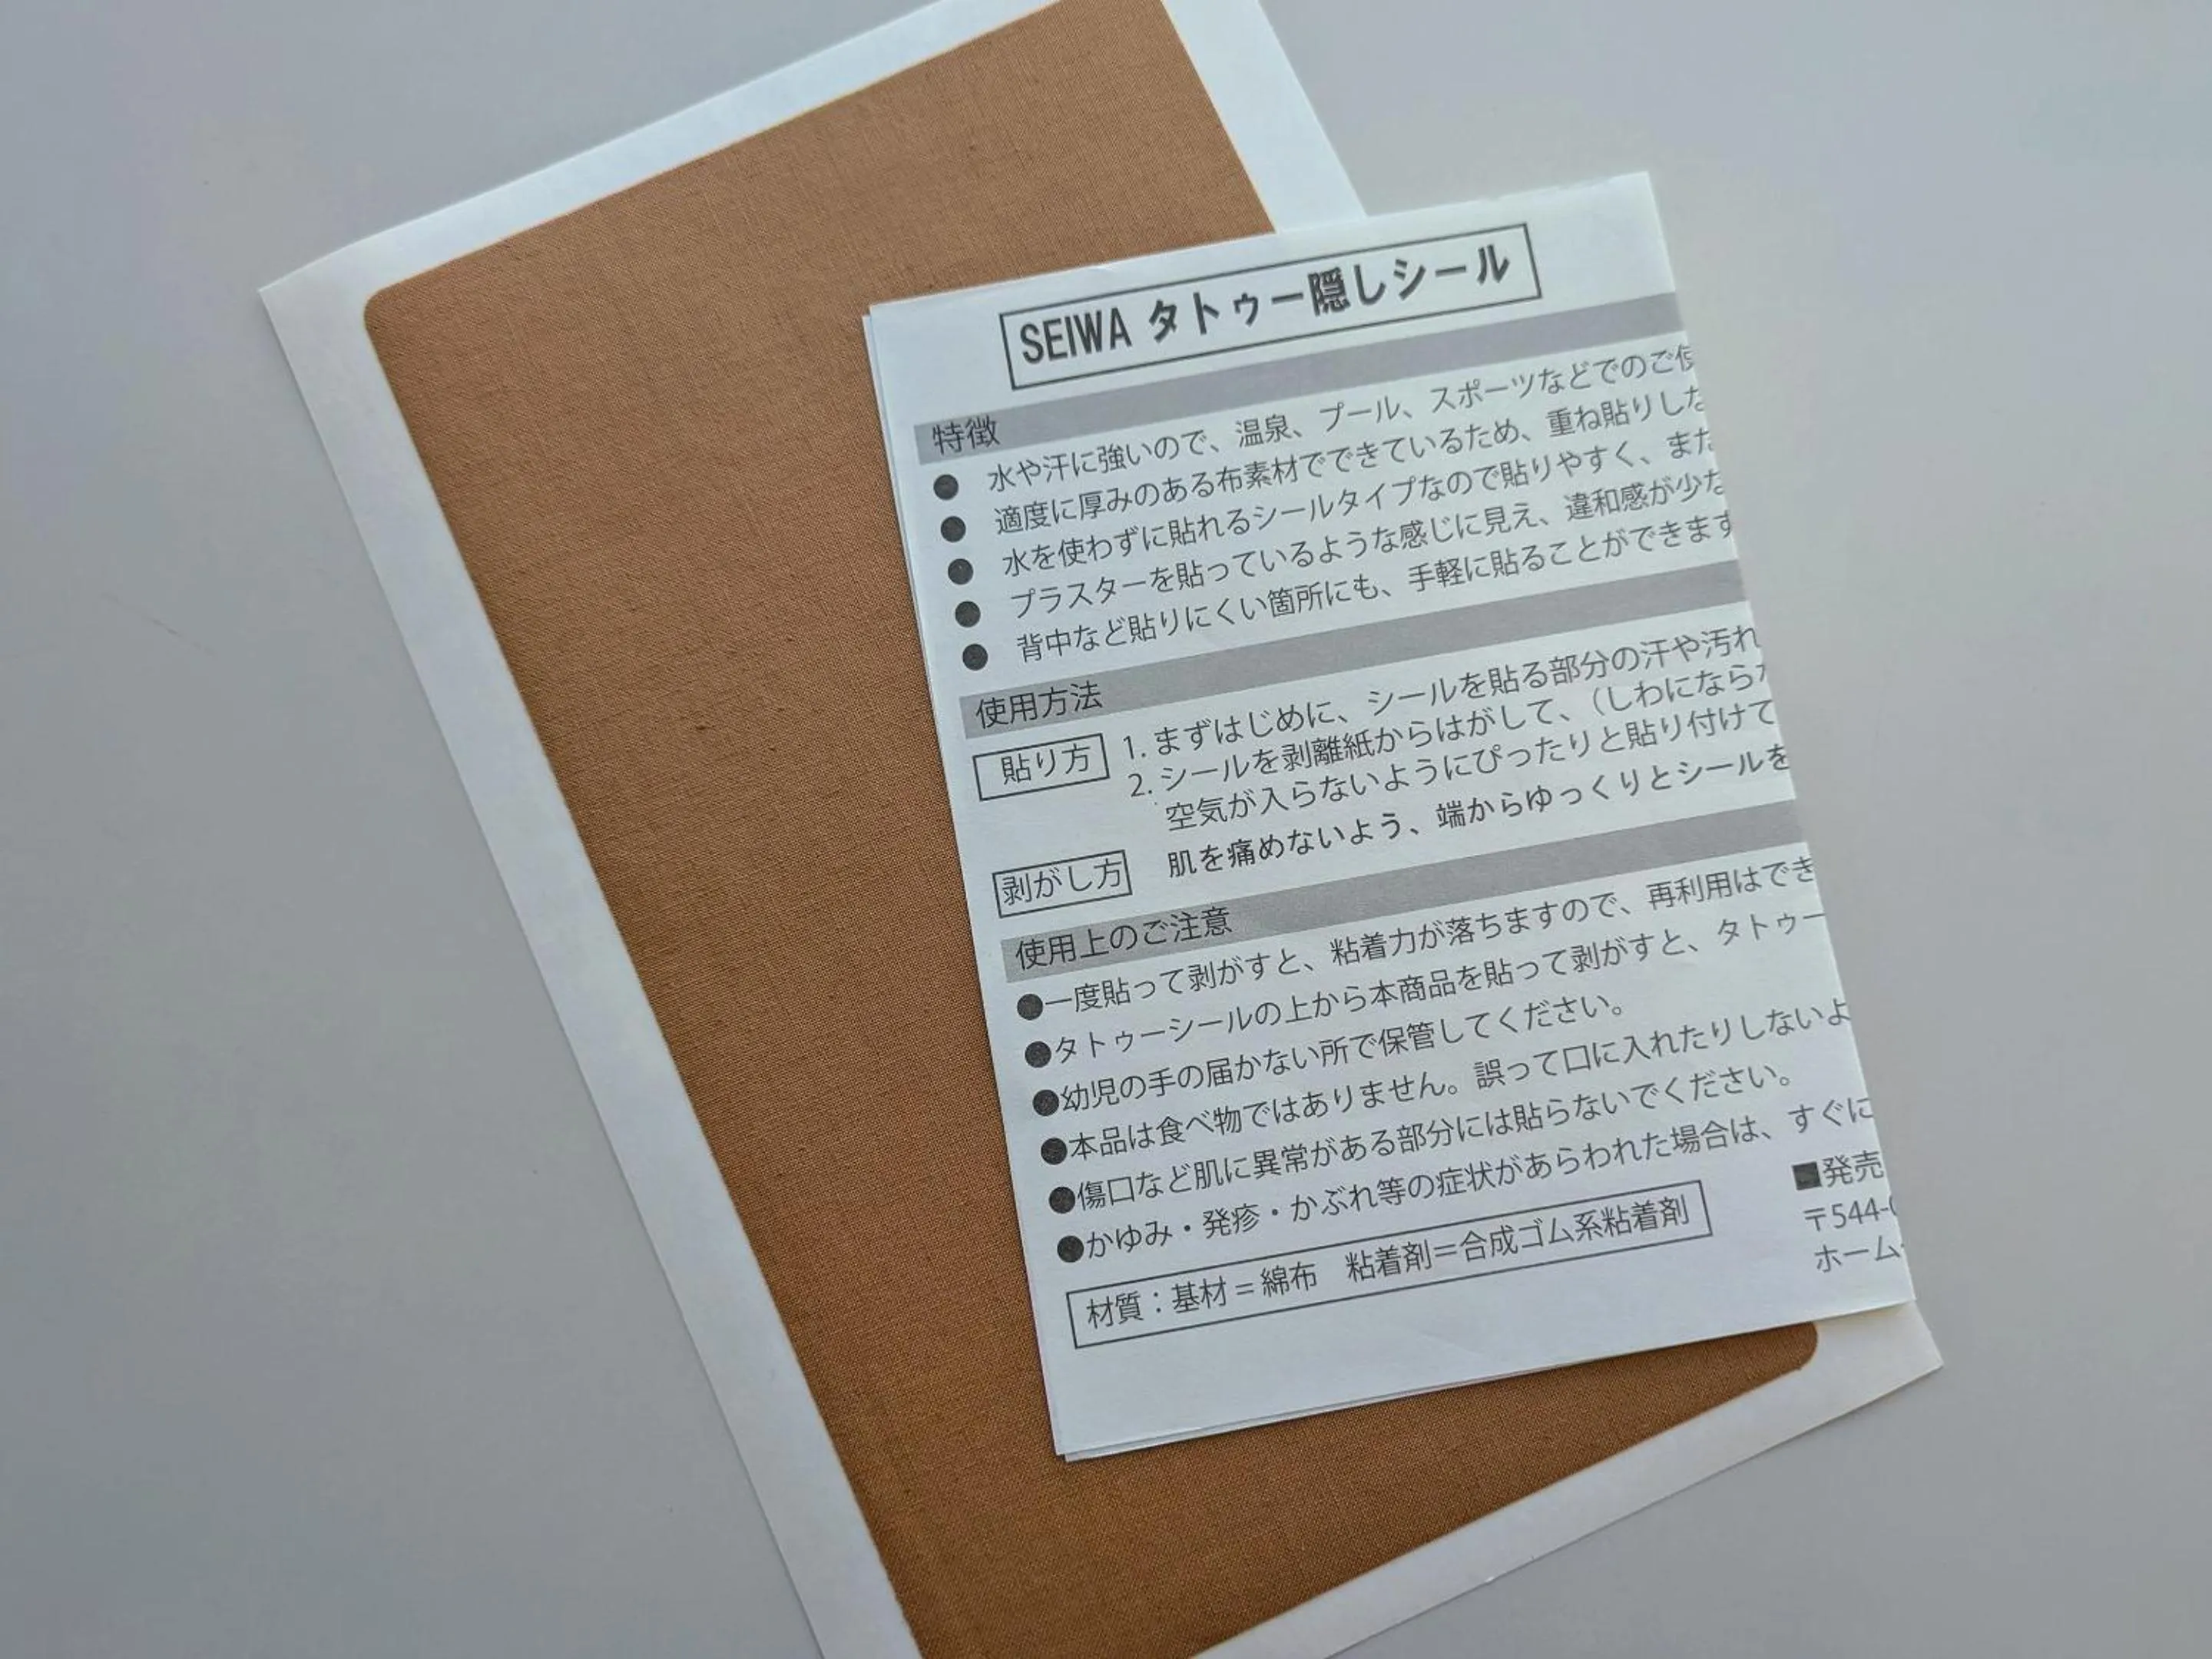 SEIWA タトゥー隠しシール
特徴
● 水や汗に強いので、温泉、プール、スポーツなどでのご使
● 適度に厚みのある布素材でできているため、重ね貼りしな
● 水を使わずに貼れるシールタイプなので貼りやすく、また
● プラスターを貼っているような感じに見え、違和感が少な
● 背中など貼りにくい箇所にも、手軽に貼ることができます
使用方法
貼り方 1. まずはじめに、シールを貼る部分の汗や汚れ
2. シールを剥離紙からはがして、(しわにならな
空気が入らないようにぴったりと貼り付けて
剥がし方 肌を痛めないよう、端からゆっくりとシールを
使用上のご注意
●一度貼って剥がすと、粘着力が落ちますので、再利用はでき
●タトゥーシールの上から本商品を貼って剥がすと、タトゥー
●幼児の手の届かない所で保管してください。
●本品は食べ物ではありません。誤って口に入れたりしないよ
●傷口など肌に異常がある部分には貼らないでください。
●かゆみ・発疹・かぶれ等の症状があらわれた場合は、すぐに
材質：基材＝綿布 粘着剤＝合成ゴム系粘着剤
■発売
〒544-
ホーム